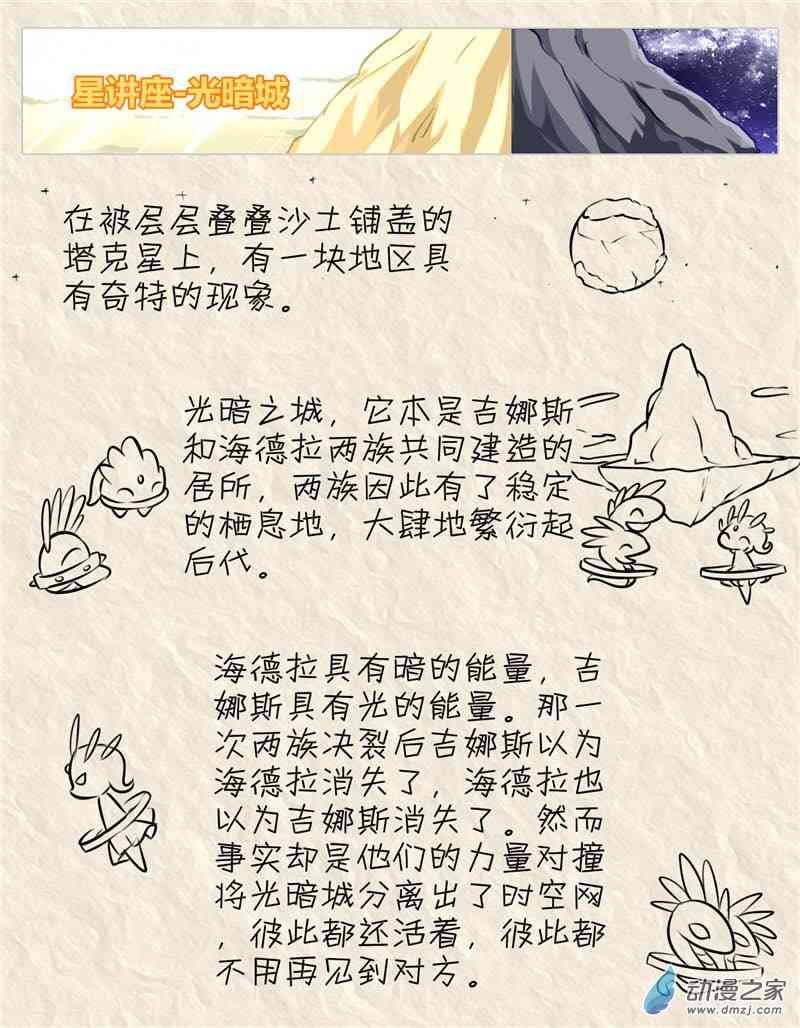 星讲座-光暗城
在被层层叠叠沙土铺盖的
塔克星上，有一块地区具
有奇特的现象。
光暗之城，它本是吉娜斯
和海德拉两族共同建造的
居所，两族因此有了稳定
的栖息地，大肆地繁衍起
后代。
海德拉具有暗的能量，吉
娜斯具有光的能量。那一
次两族决裂后吉娜斯以为
海德拉消失了，海德拉也
以为吉娜斯消失了。然而
事实却是他们的力量对撞
将光暗城分离出了时空网
，彼此都还活着，彼此都
不用再见到对方。
动漫之家
www.dmzj.com